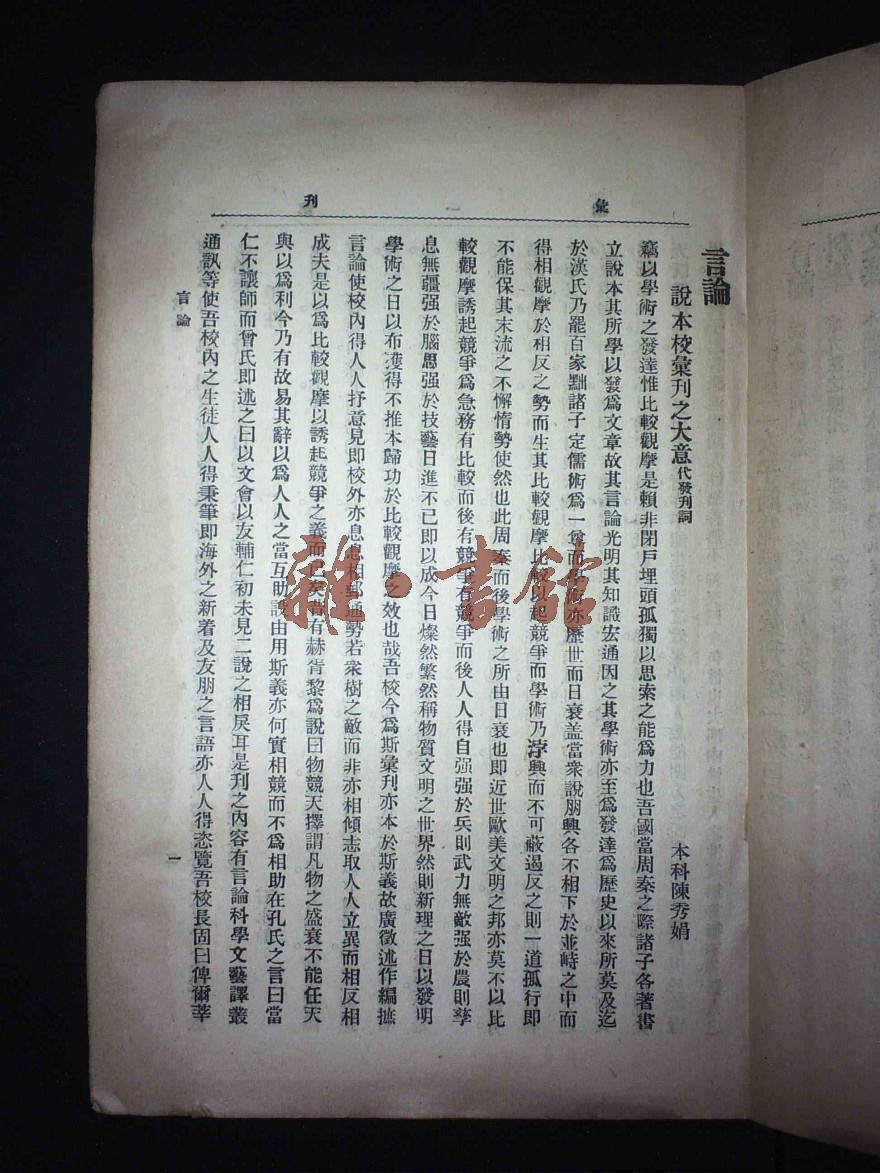 彙
刊
言論
說本校彙刊之大意代發刊詞
本科陳秀娟
竊以學術之發達惟比較觀摩是賴非閉戶埋頭孤獨以思索之能爲力也吾國當周秦之際諸子各著書
立說本其所學以發爲文章故其言論光明其知識宏通因之其學術亦至爲發達爲歷史以來所莫及迄
於漢氏乃罷百家黜諸子定儒術爲一尊而學術亦歷世而日衰盖當衆說朋興各不相下於並峙之中而
得相觀摩於相反之勢而生其比較觀摩比較以起競爭而學術乃浡興而不可蔽遏反之則一道孤行即
不能保其末流之不懈惰勢使然也此周秦而後學術之所由日衰也即近世歐美文明之邦亦莫不以比
較觀摩誘起競爭爲急務有比較而後有競爭有競爭而後人人得自强强於兵則武力無敵强於農則孳
息無疆强於腦思强於技藝日進不已即以成今日燦然繁然稱物質文明之世界然則新理之日以發明
學術之日以布濩得不推本歸功於比較觀摩之效也哉吾校今爲斯彙刊亦本於斯義故廣徵述作編摭
言論使校內得人人抒意見即校外亦息息相郵通勢若衆樹之敵而非亦相傾志取人人立異而相反相
成夫是以爲比較觀摩以誘起競爭之義而已矣昔有赫胥黎爲說曰物競天擇謂凡物之盛衰不能任天
與以爲利今乃有故易其辭以爲人人之當互助設由用斯義亦何實相競而不爲相助在孔氏之言曰當
仁不讓師而曾氏即述之曰以文會以友輔仁初未見二說之相戾耳是刊之內容有言論科學文藝譯叢
通訊等使吾校內之生徒人人得秉筆即海外之新着及友朋之言語亦人人得恣覽吾校長固曰俾爾莘
言論
一
雜·書館